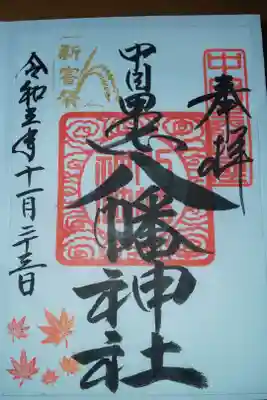 奉拝
中目黒八幡神社
新嘗祭
令和五年十一月二十三日